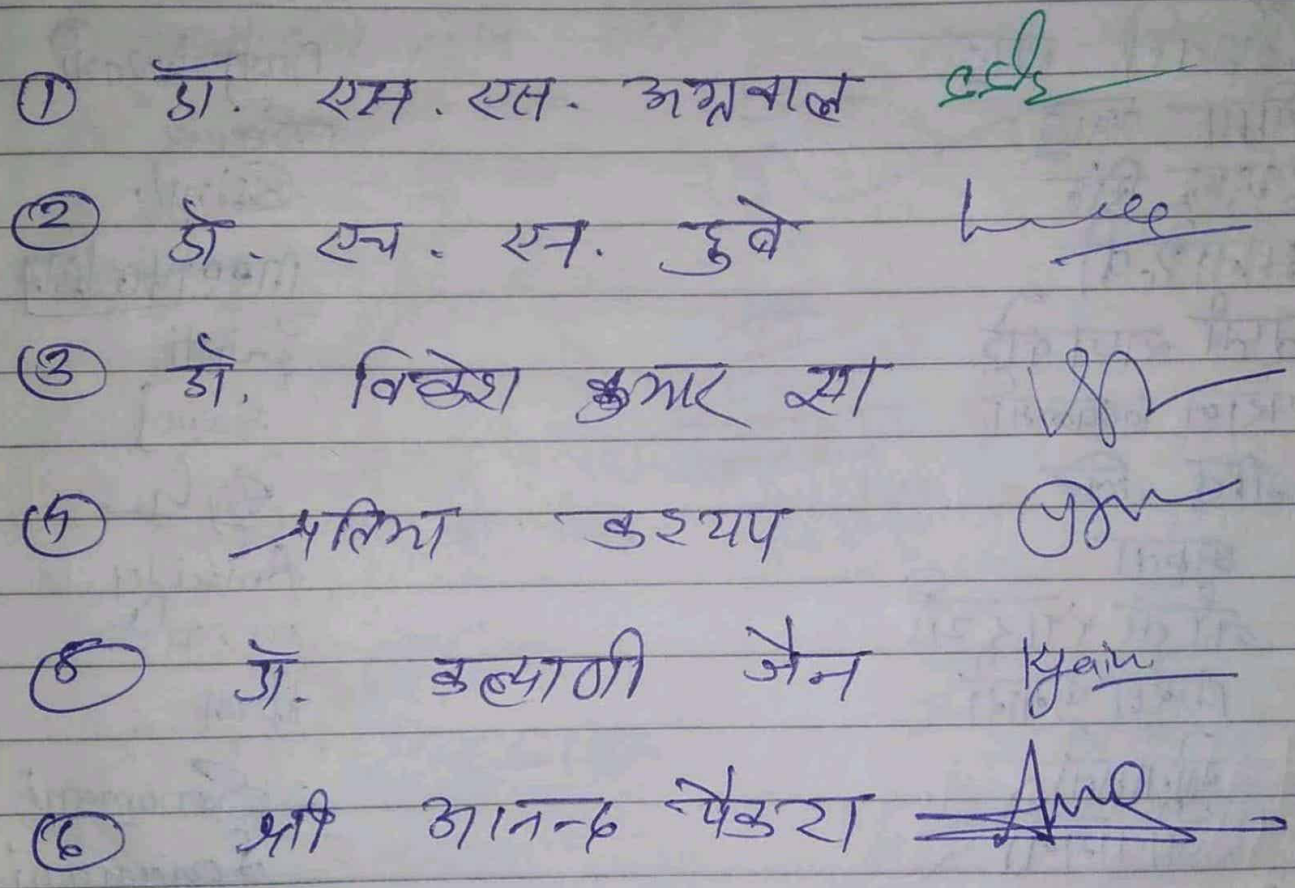 ① डॉ. एस. एस. अग्रवाल
② डॉ. एच. एन. दुबे
③ डॉ. कुमार
④ प्रतिमा कश्यप
⑤ डॉ. कल्याणी जैन Kjain
⑥ श्री आनन्द पैकरा